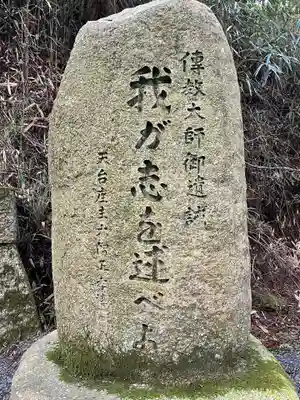 傳教大師御遺誡
我が志を述べよ
天台座主